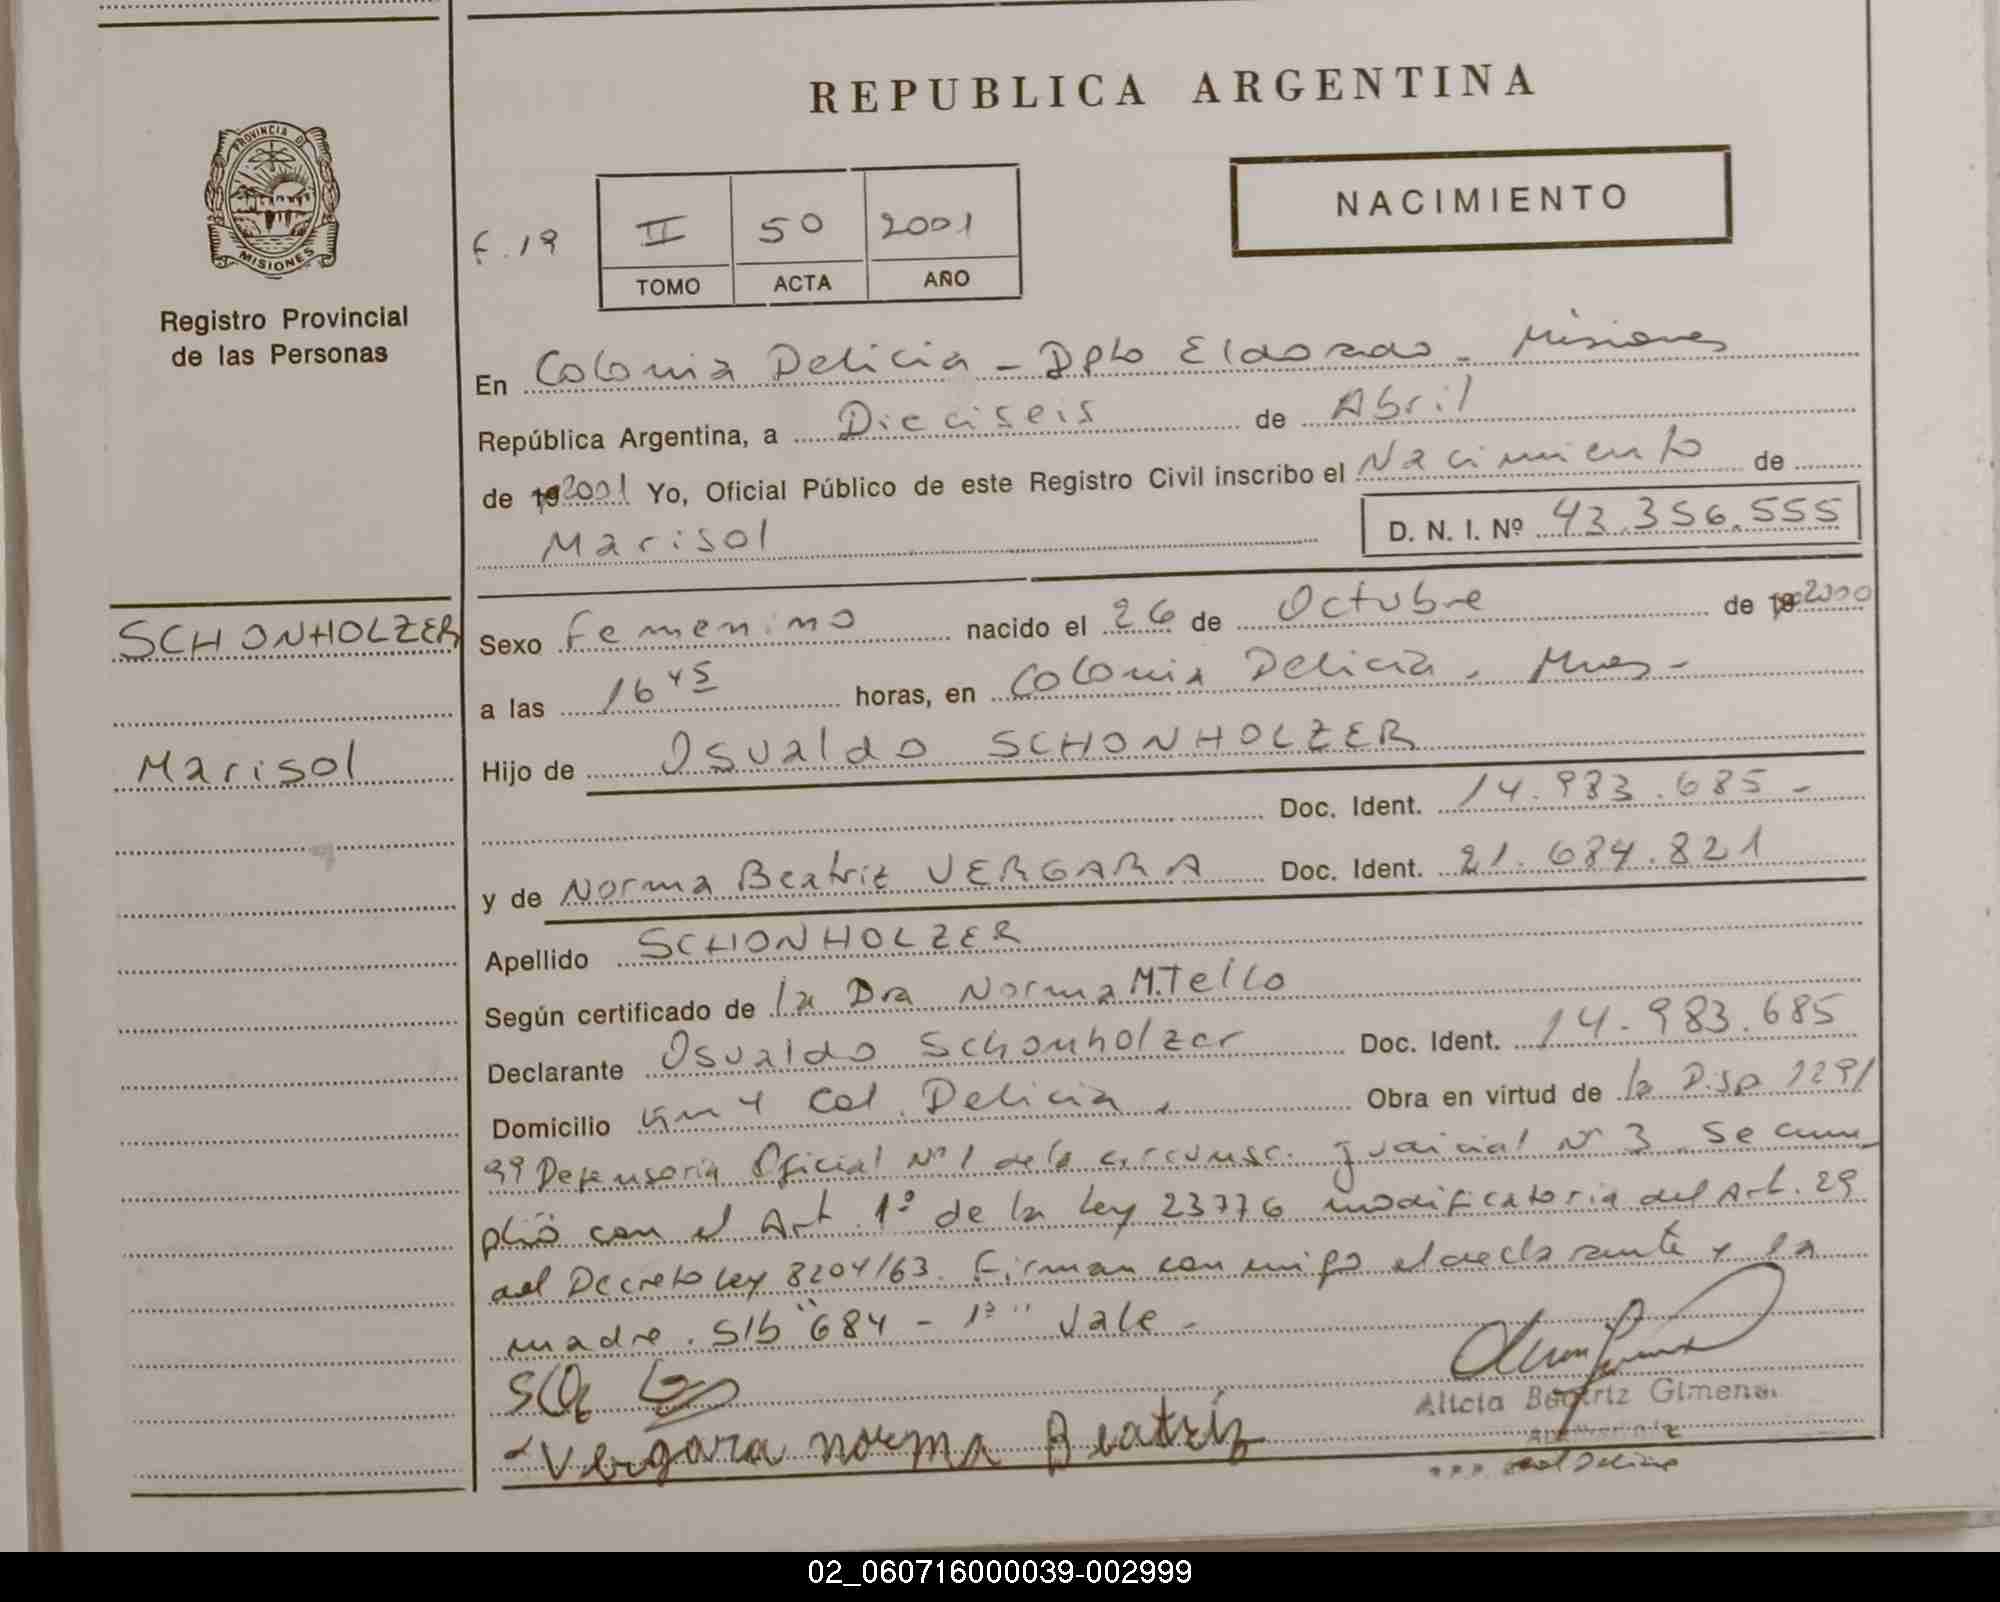 REPUBLICA ARGENTINA
PROVINCIA D
MISIONES
Registro Provincial
de las Personas
NACIMIENTO
F. 19
II 50 2001
TOMO ACTA AÑO
En Colonia Delicia - Dpto Eldorado - Misiones
República Argentina, a Dieciseis de Abril
de 19 2001 Yo, Oficial Público de este Registro Civil inscribo el Nacimiento de
Marisol D. N. I. Nº 43.356.555
SCHONHOLZER
Marisol
Sexo Femenino nacido el 26 de Octubre de 19 2000
a las 16 45 horas, en Colonia Delicia. Mnes-
Hijo de Osvaldo SCHONHOLZER
Doc. Ident. 14.983.685-
y de Norma Beatriz VERGARA Doc. Ident. 21.684.821
Apellido SCHONHOLZER
Según certificado de la Dra Norma M.Tello
Declarante Osvaldo Schonholzer Doc. Ident. 14.983.685
Domicilio Km 4 Col. Delicia, Obra en virtud de la Disp 1291
99 Defensoria Oficial Nº 1 de la circunsc. judicial Nº 3 Se cum
plió con el Art. 1º de la Ley 23776 modificatoria del Art. 29
del Decreto Ley 8204/63. Firman conmigo el declarante y la
madre. S/b "684 - 1º" Vale-
Vergara norma Beatriz
Alicia Beatriz Gimenez
Col Delicia
02_060716000039-002999